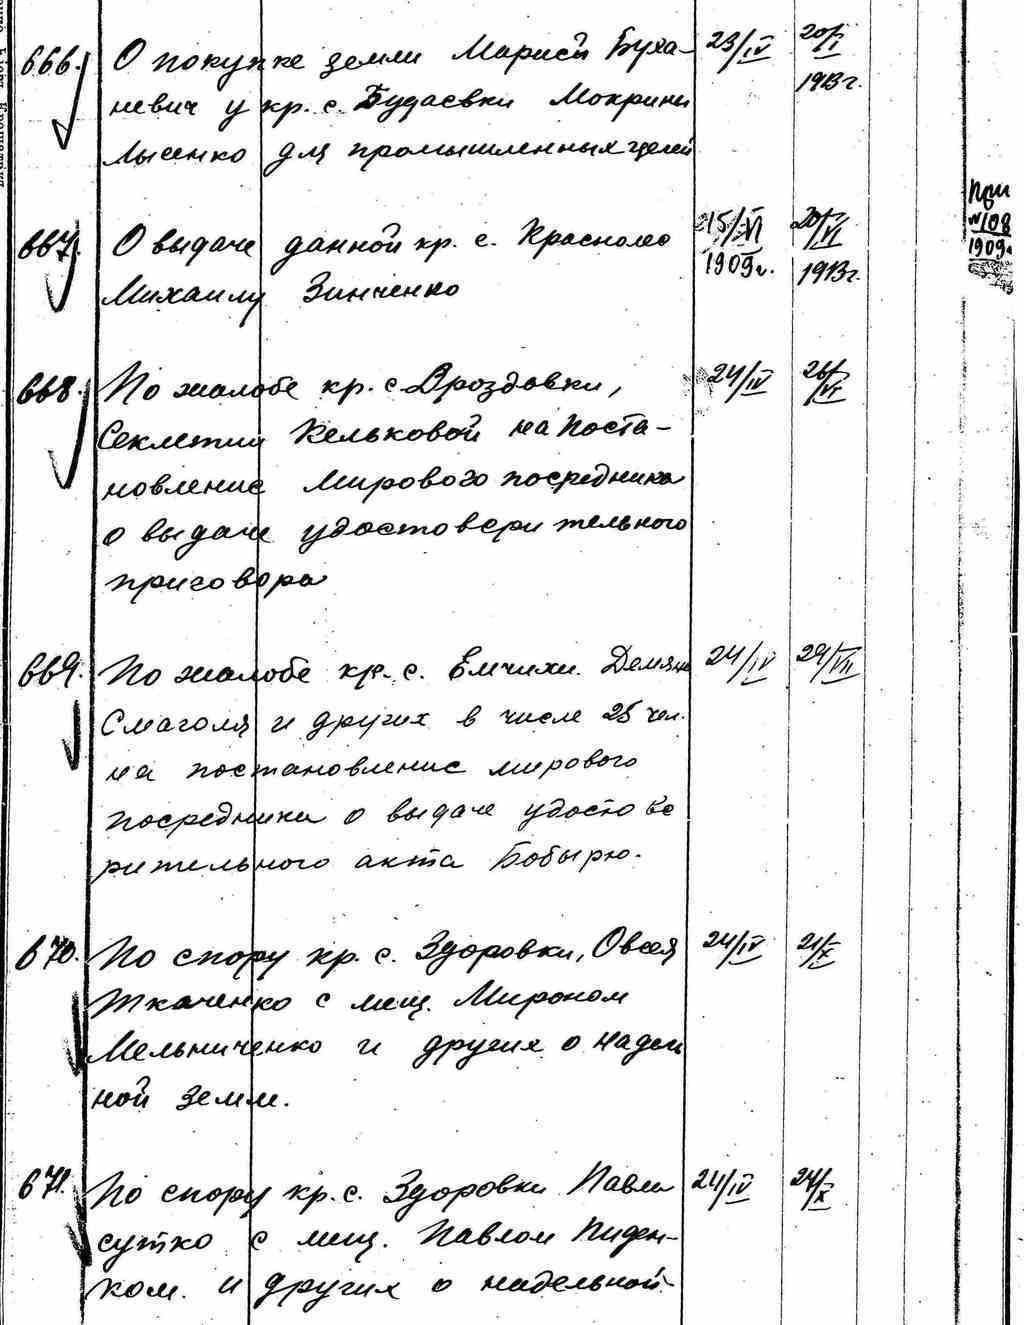 666. О покупке земли Марией Буха- 23/IV 20/I
невич у кр. с. Будаевки Мокрины 1913 г.
Лысенко для промышленных целей
При
№108
1909 г.
667. О выдаче данной кр. с. Краснолес 15/VI 20/VI
Михаилу Зинченко 1909 г. 1913 г.
668. По жалобе кр. с. Дроздовки, 24/IV 26/VI
Секлетии Кельковой на поста-
новление мирового посредника
о выдаче удостоверительного
приговора
669. По жалобе кр. с. Емчихи Демьяна 24/IV 29/VII
Смаголя и других в числе 25 чел.
на постановление мирового
посредника о выдаче удостове
рительного акта Бобырю.
670. По спору кр. с. Здоровки, Овсея 24/IV 21/X
Ткаченко с мещ. Мироном
Мельниченко и других о надель
ной земли.
671. По спору кр. с. Здоровки Павла 24/IV 24/X
сутко с мещ. Павлом Пиден-
ком. и других о надельной